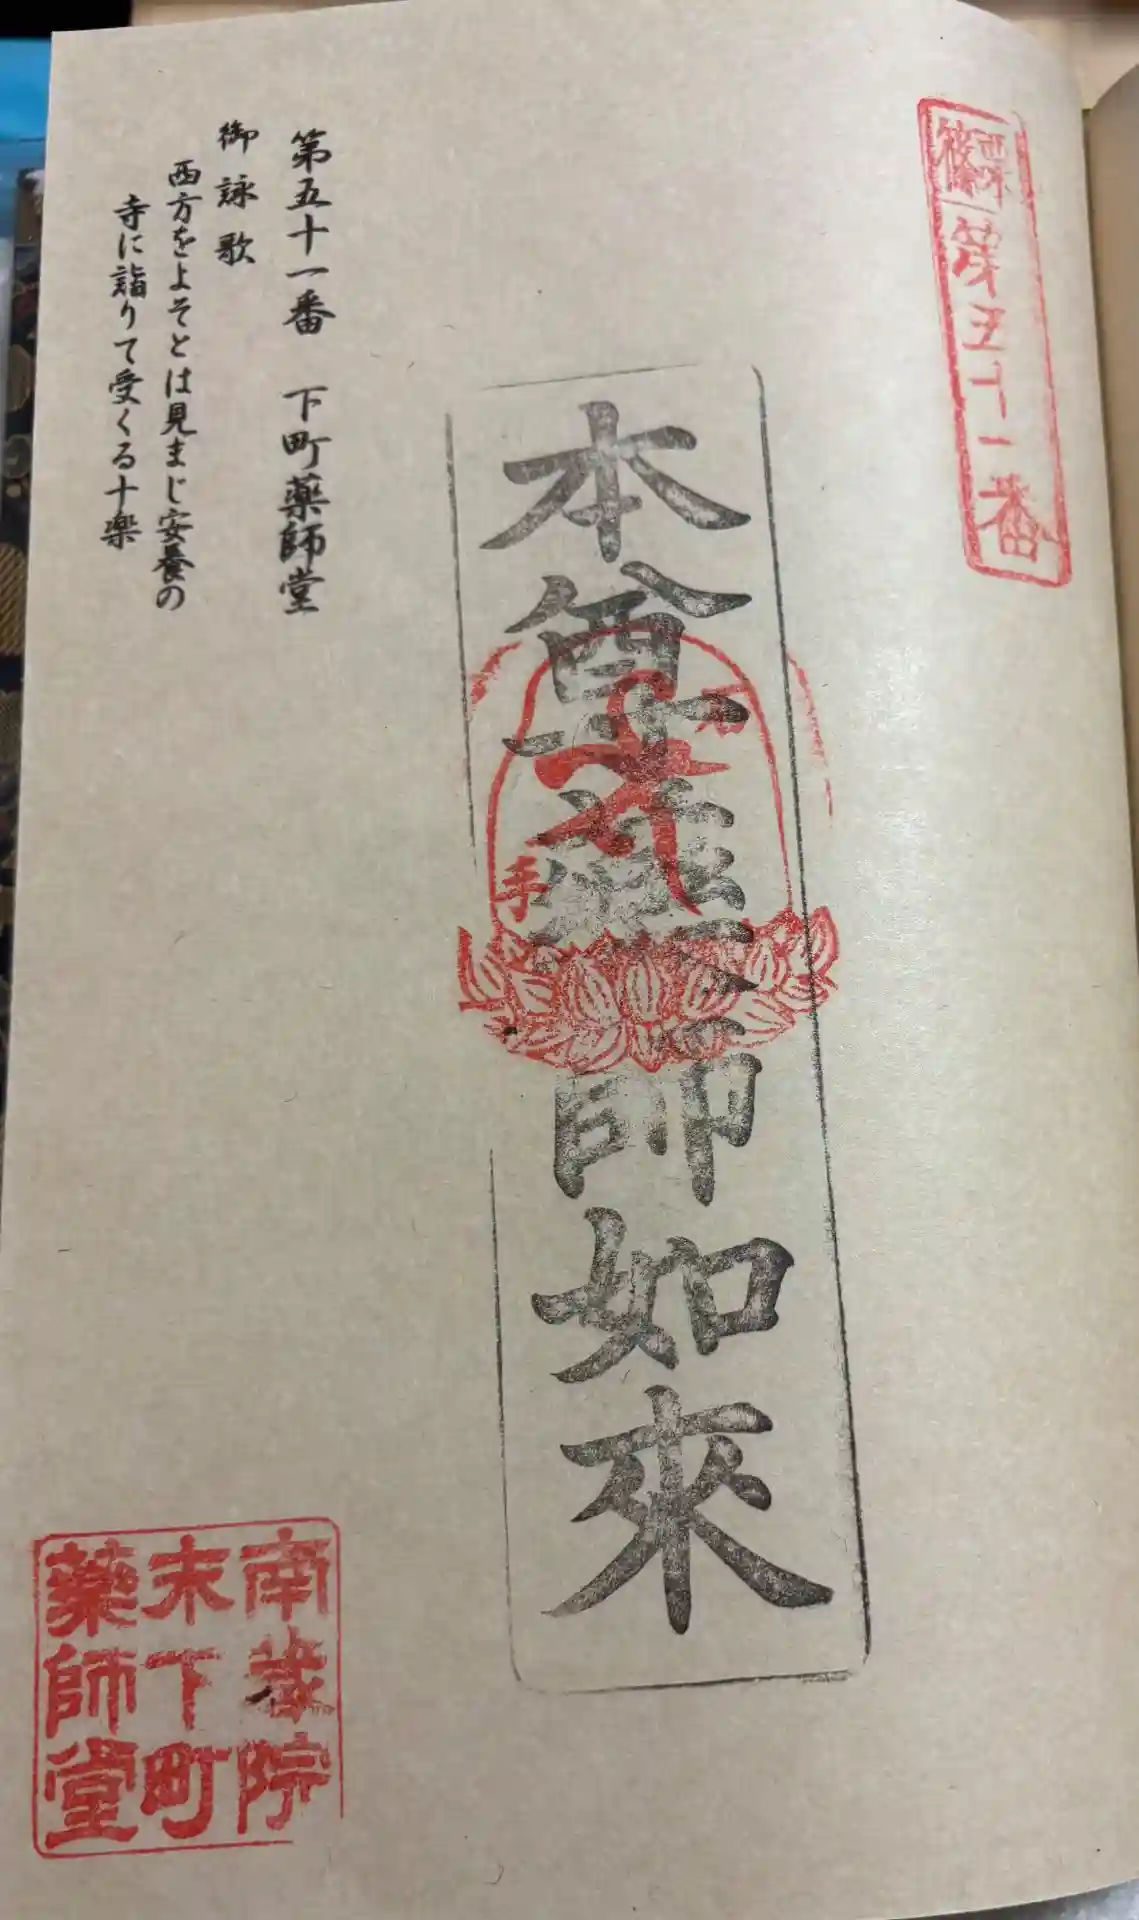 霊場
篠栗
第五十一番
本尊薬師如來
手
第五十一番 下町薬師堂
御詠歌
西方をよそとは見まじ安養の
寺に詣りて受くる十楽
南蔵院
末下町
薬師堂